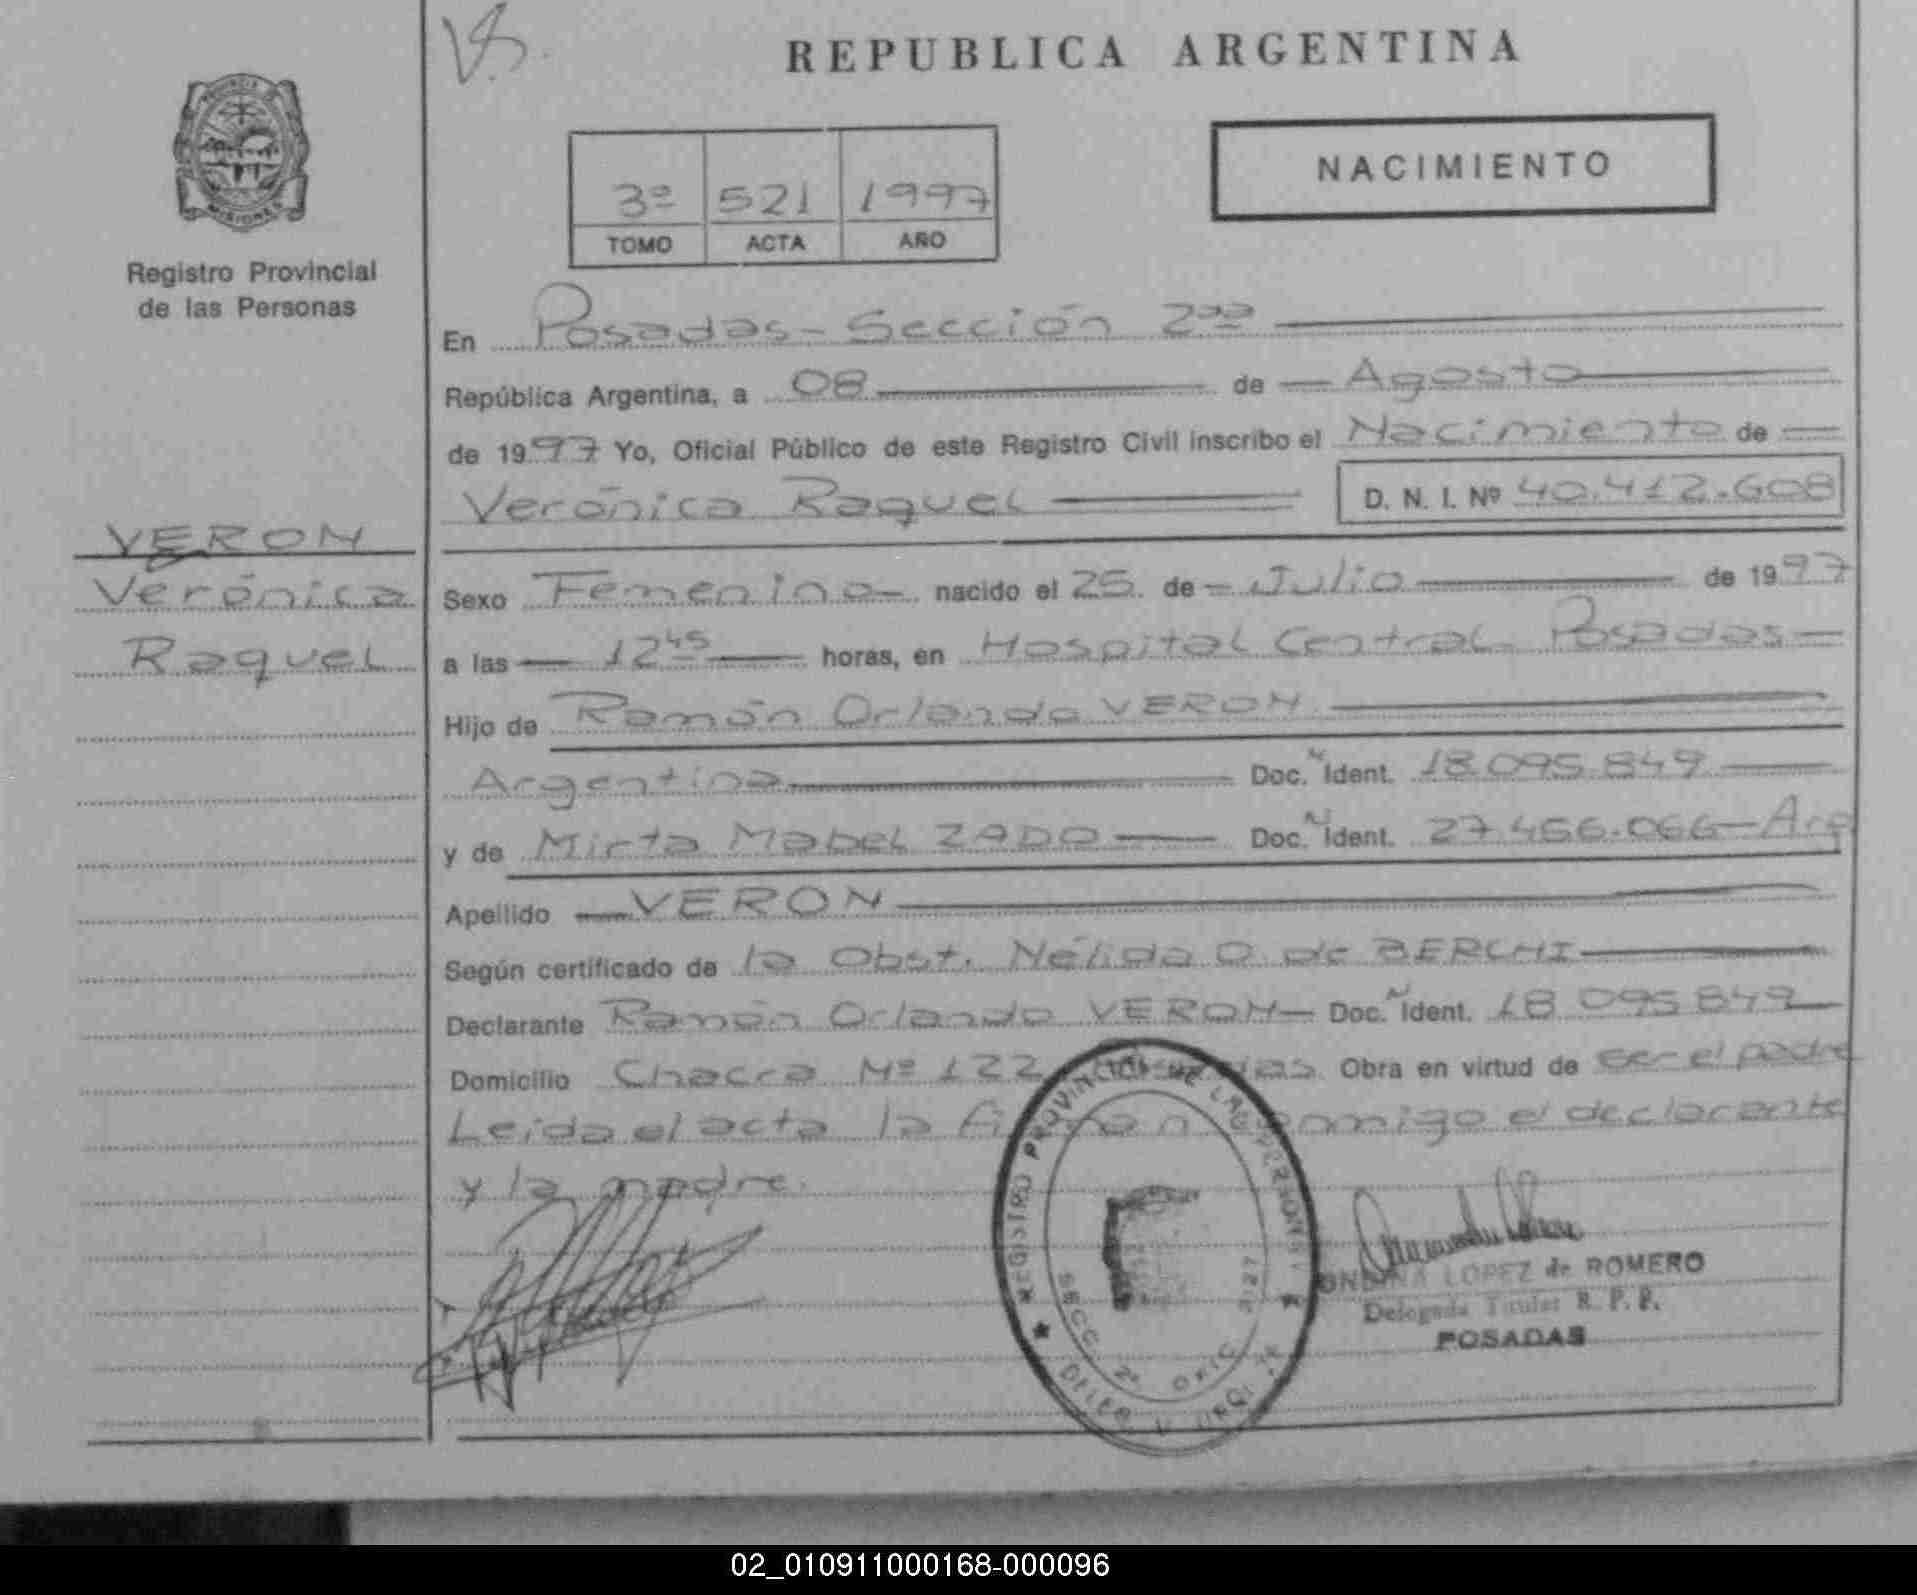 REPUBLICA ARGENTINA
NACIMIENTO
3º 521 1997
TOMO ACTA AÑO
Registro Provincial
de las Personas
En Posadas - Sección 2da
República Argentina, a 08 de Agosto
de 1997 Yo, Oficial Público de este Registro Civil inscribo el Nacimiento de
Verónica Raquel D. N. I. Nº 40.412.608
VERON
Verónica
Raquel
Sexo Femenino nacido el 25 de Julio de 1997
a las 12 45 horas, en Hospital Central - Posadas
Hijo de Ramón Orlando VERON
Argentina Doc. Ident. 18.095.849
y de Mirta Mabel ZADO Doc. Ident. 27.456.066 - Arg
Apellido VERON
Según certificado de la Obst. Nélida O. de BERCHI
Declarante Ramón Orlando VERON Doc. Ident. 18.095.849
Domicilio Chacra Nº 122 Obra en virtud de ser el padre
Leida el acta la firman conmigo el declarante
y la madre.
REGISTRO PROVINCIAL DE LAS PERSONAS
SECC. 2ª
LOPEZ de ROMERO
Delegada Titular R. P. P.
POSADAS
02_010911000168-000096